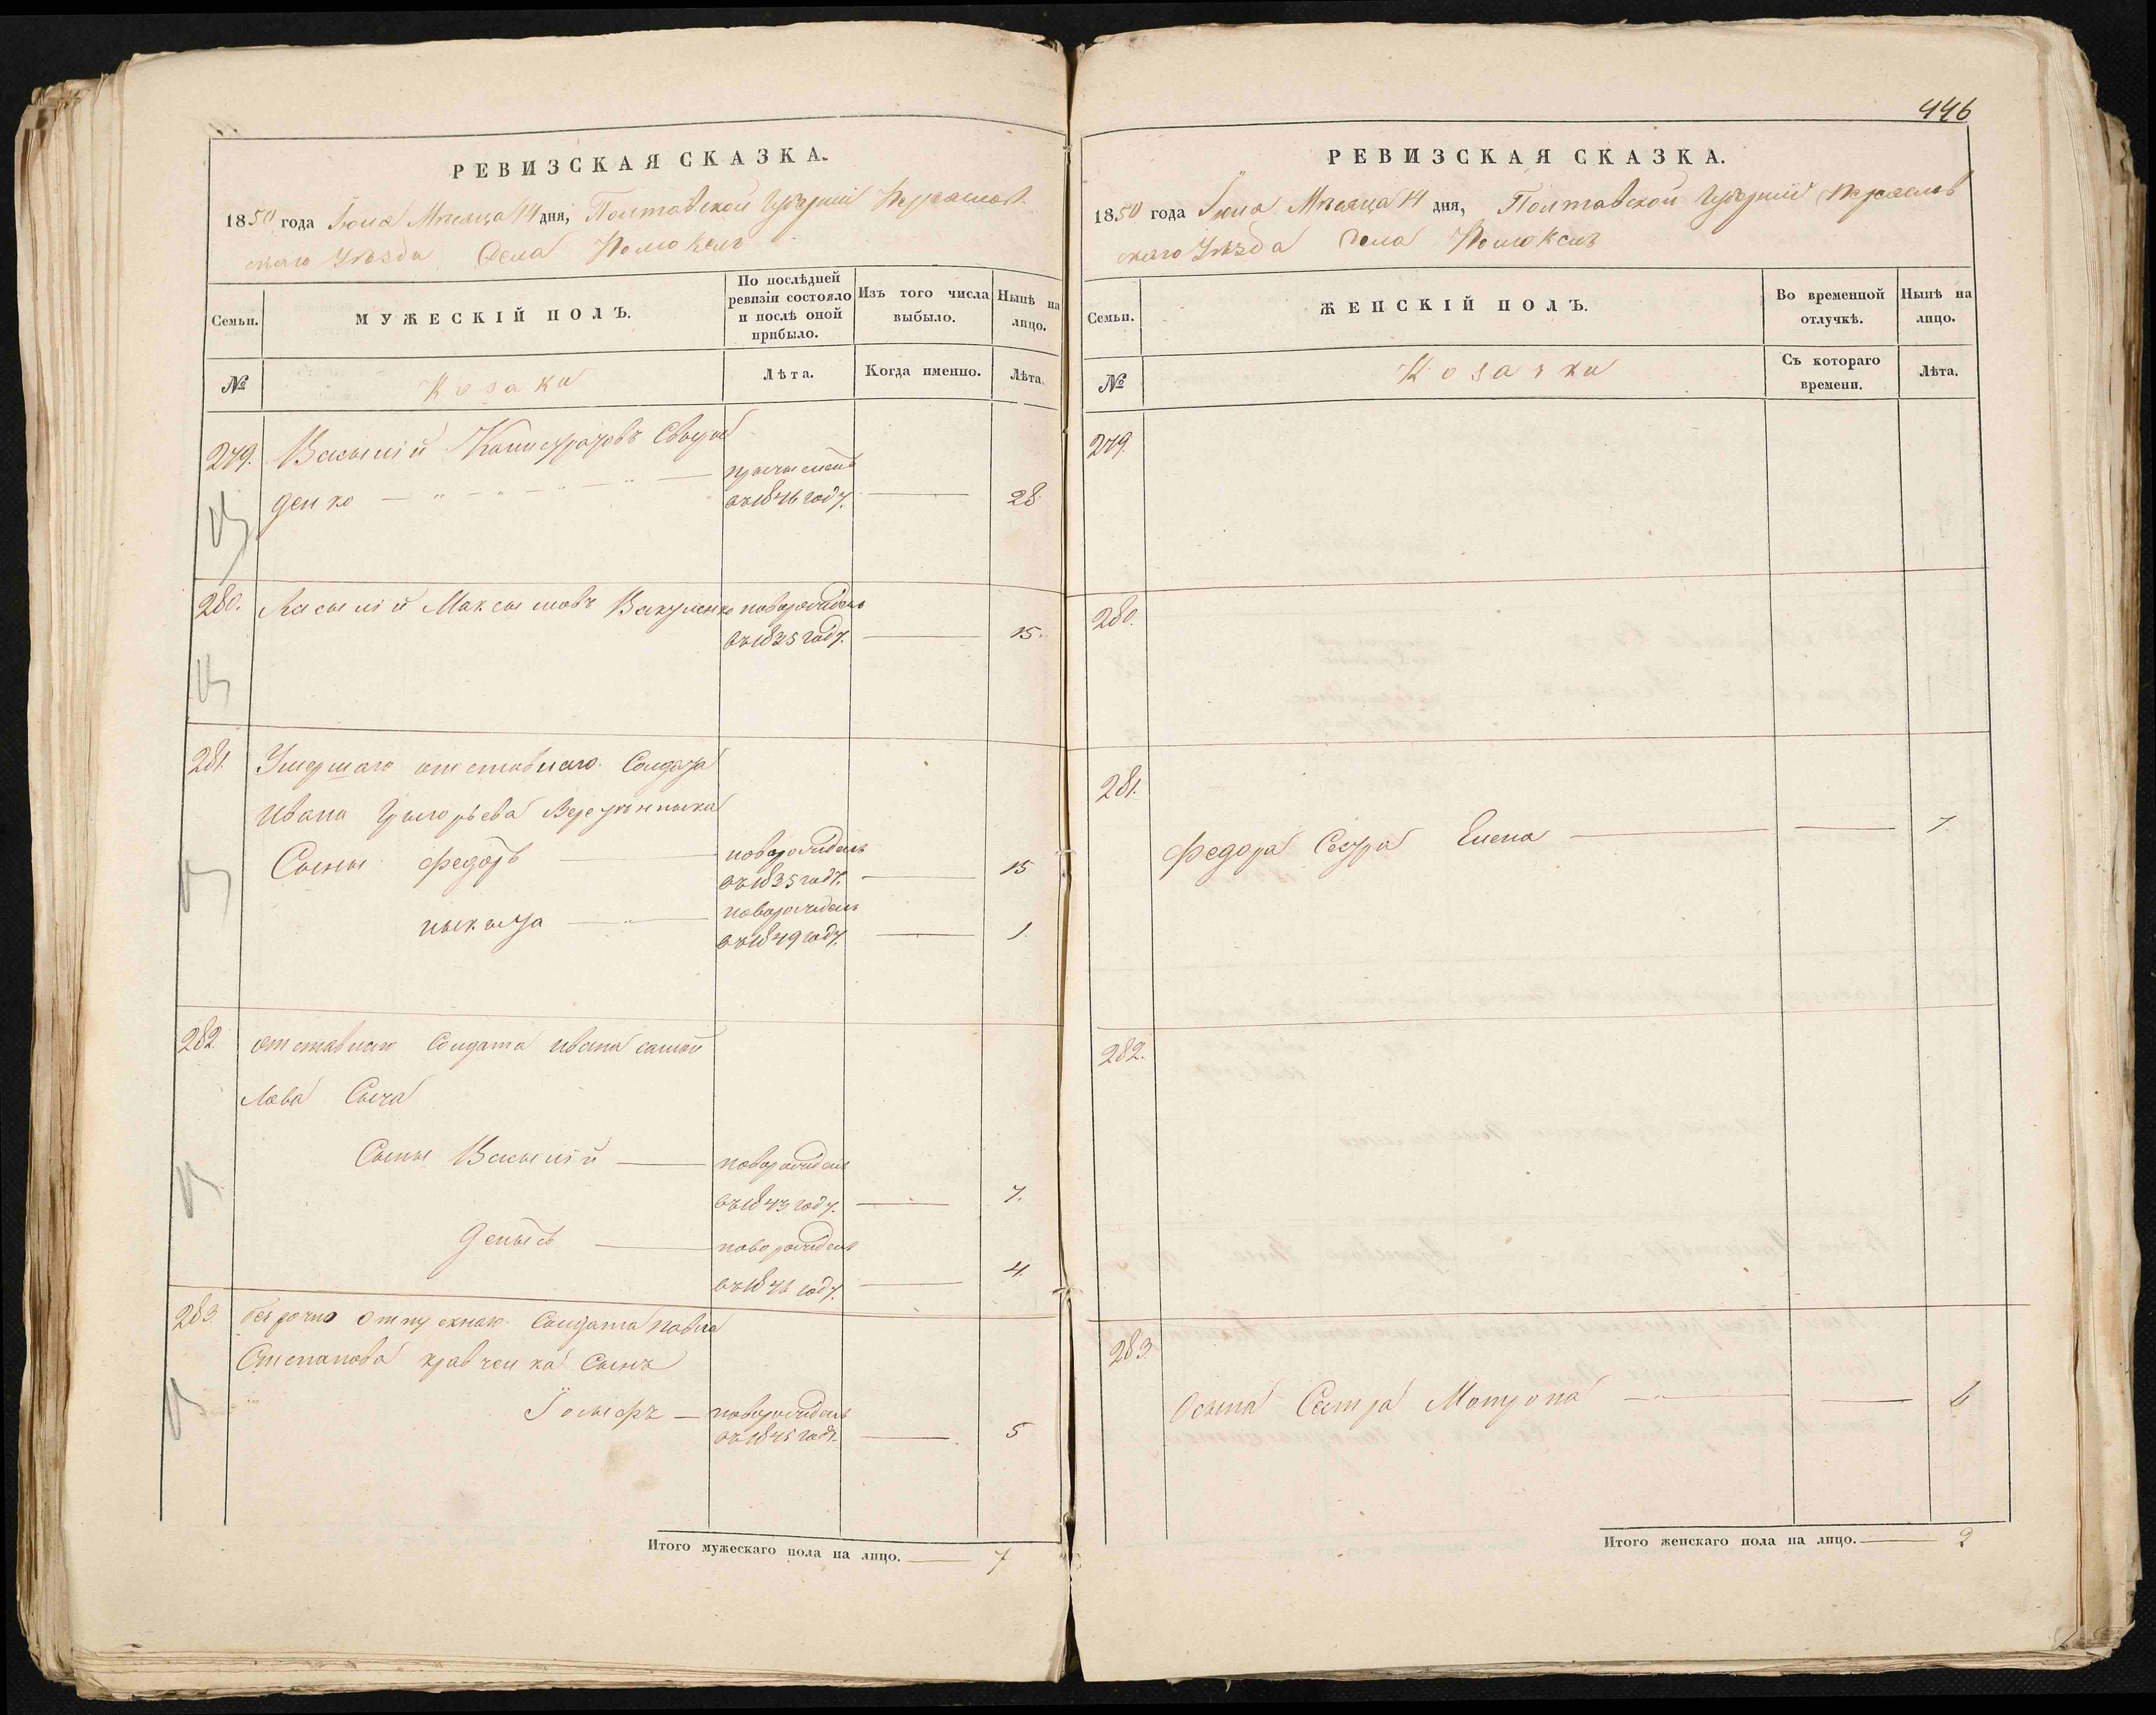 РЕВИЗСКАЯ СКАЗКА.
1850 года Іюля Мѣсяца 14 дня, Полтавской Губерніи Переяслов
скаго Уѣзда Села Помоклъ
Семьи.
МУЖЕСКІЙ ПОЛЪ.
По послѣдней ревизіи состояло и послѣ оной прибыло.
Изъ того числа выбыло.
Нынѣ на лицо.
№
Козаки
Лѣта.
Когда именно.
Лѣта.
279. Василій Калистратовъ
денко причисленъ
въ 1846 году. 28
280. Василій Максимовъ Вакуленко новорожденъ
въ 1835 году. 15.
281. Умершаго отставнаго Солдата
Ивана Григорьева
Сыны Федоръ новорожденъ
въ 1835 году. 15
Никита новорожденъ
въ 1849 году. 1.
282. отставнаго Солдата Ивана Самой
лова Сыча
Сыны Василій новорожденъ
въ 1843 году. 7.
Денысъ новорожденъ
въ 1846 году. 4.
283. безсрочно отпускнаго Солдата Павла
Степанова Кравченка Сынъ
Іосифъ новорожденъ
въ 1845 году. 5
Итого мужескаго пола на лицо. 7
446
РЕВИЗСКАЯ СКАЗКА.
1850 года Іюля Мѣсяца 14 дня, Полтавской Губерніи Переяслов
скаго Уѣзда Села Помоклъ
Семьи.
ЖЕНСКІЙ ПОЛЪ.
Во временной отлучкѣ.
Нынѣ на лицо.
№
Козачки
Съ котораго времени.
Лѣта.
279.
280.
281.
Федора Сестра Елена 7.
282.
283.
Осипа Сестра Мотрона 6
Итого женскаго пола на лицо. 2